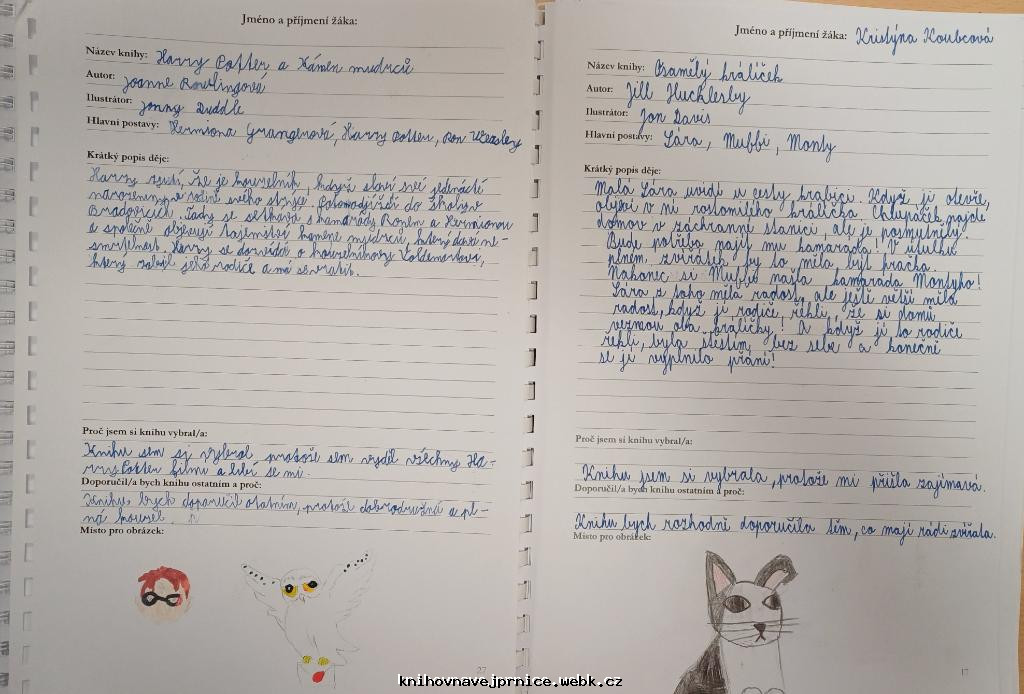 Jméno a příjmení žáka:
Název knihy: Harry Potter a Kámen mudrců
Autor: Joanne Rowlingová
Ilustrátor: Jonny Duddle
Hlavní postavy: Hermiona Grangerová, Harry Potter, Ron Weasley
Krátký popis děje:
Harry zjistí, že je kouzelník, když slaví své jedenácté
narozeniny v rodině svého strýce.
Bradavicích. Tady se setkává s kamarády Ronem a Hermionou
a společně objevují tajemství kamene mudrců, který dává ne-
smrtelnost. Harry se dozvídá o kouzelníkovy Voldemortovi,
který zabil jeho rodiče a má se vrátit.
Proč jsem si knihu vybral/a:
Knihu sem si vybral, protože sem vyděl všechny Ha-
rry Potter filmi a líbí se mi.
Doporučil/a bych knihu ostatním a proč:
Knihu bych doporučil ostatním, protože dobrodružná a pl-
ná kouzel.
Místo pro obrázek:
27
Jméno a příjmení žáka: Kristýna Koubcová
Název knihy: Osamělý králíček
Autor: Jill Hucklesby
Ilustrátor: Jon Davis
Hlavní postavy: Sára, Muffi, Monty
Krátký popis děje:
Malá Sára uvidí u cesty krabici. Když ji otevře,
objeví v ní roztomilého králíčka. Chlupáček najde
domov v záchranné stanici, ale je posmutnělý.
Bude potřeba najít mu kamaráda! V útulku
plném zvířátek by to měla být hračka.
Nakonec si Muffi našla kamaráda Montyho!
Sára z toho měla radost, ale ještě větší měla
radost, když jí rodiče řekli, že si domů
vezmou oba králíčky! A když jí to rodiče
řekli, byla štěstím bez sebe a konečně
se jí vyplnilo přání!
Proč jsem si knihu vybral/a:
Knihu jsem si vybrala, protože mi přišla zajímavá.
Doporučil/a bych knihu ostatním a proč:
Knihu bych rozhodně doporučila těm, co mají rádi zvířata.
Místo pro obrázek:
17
knihovnavejprnice.webk.cz